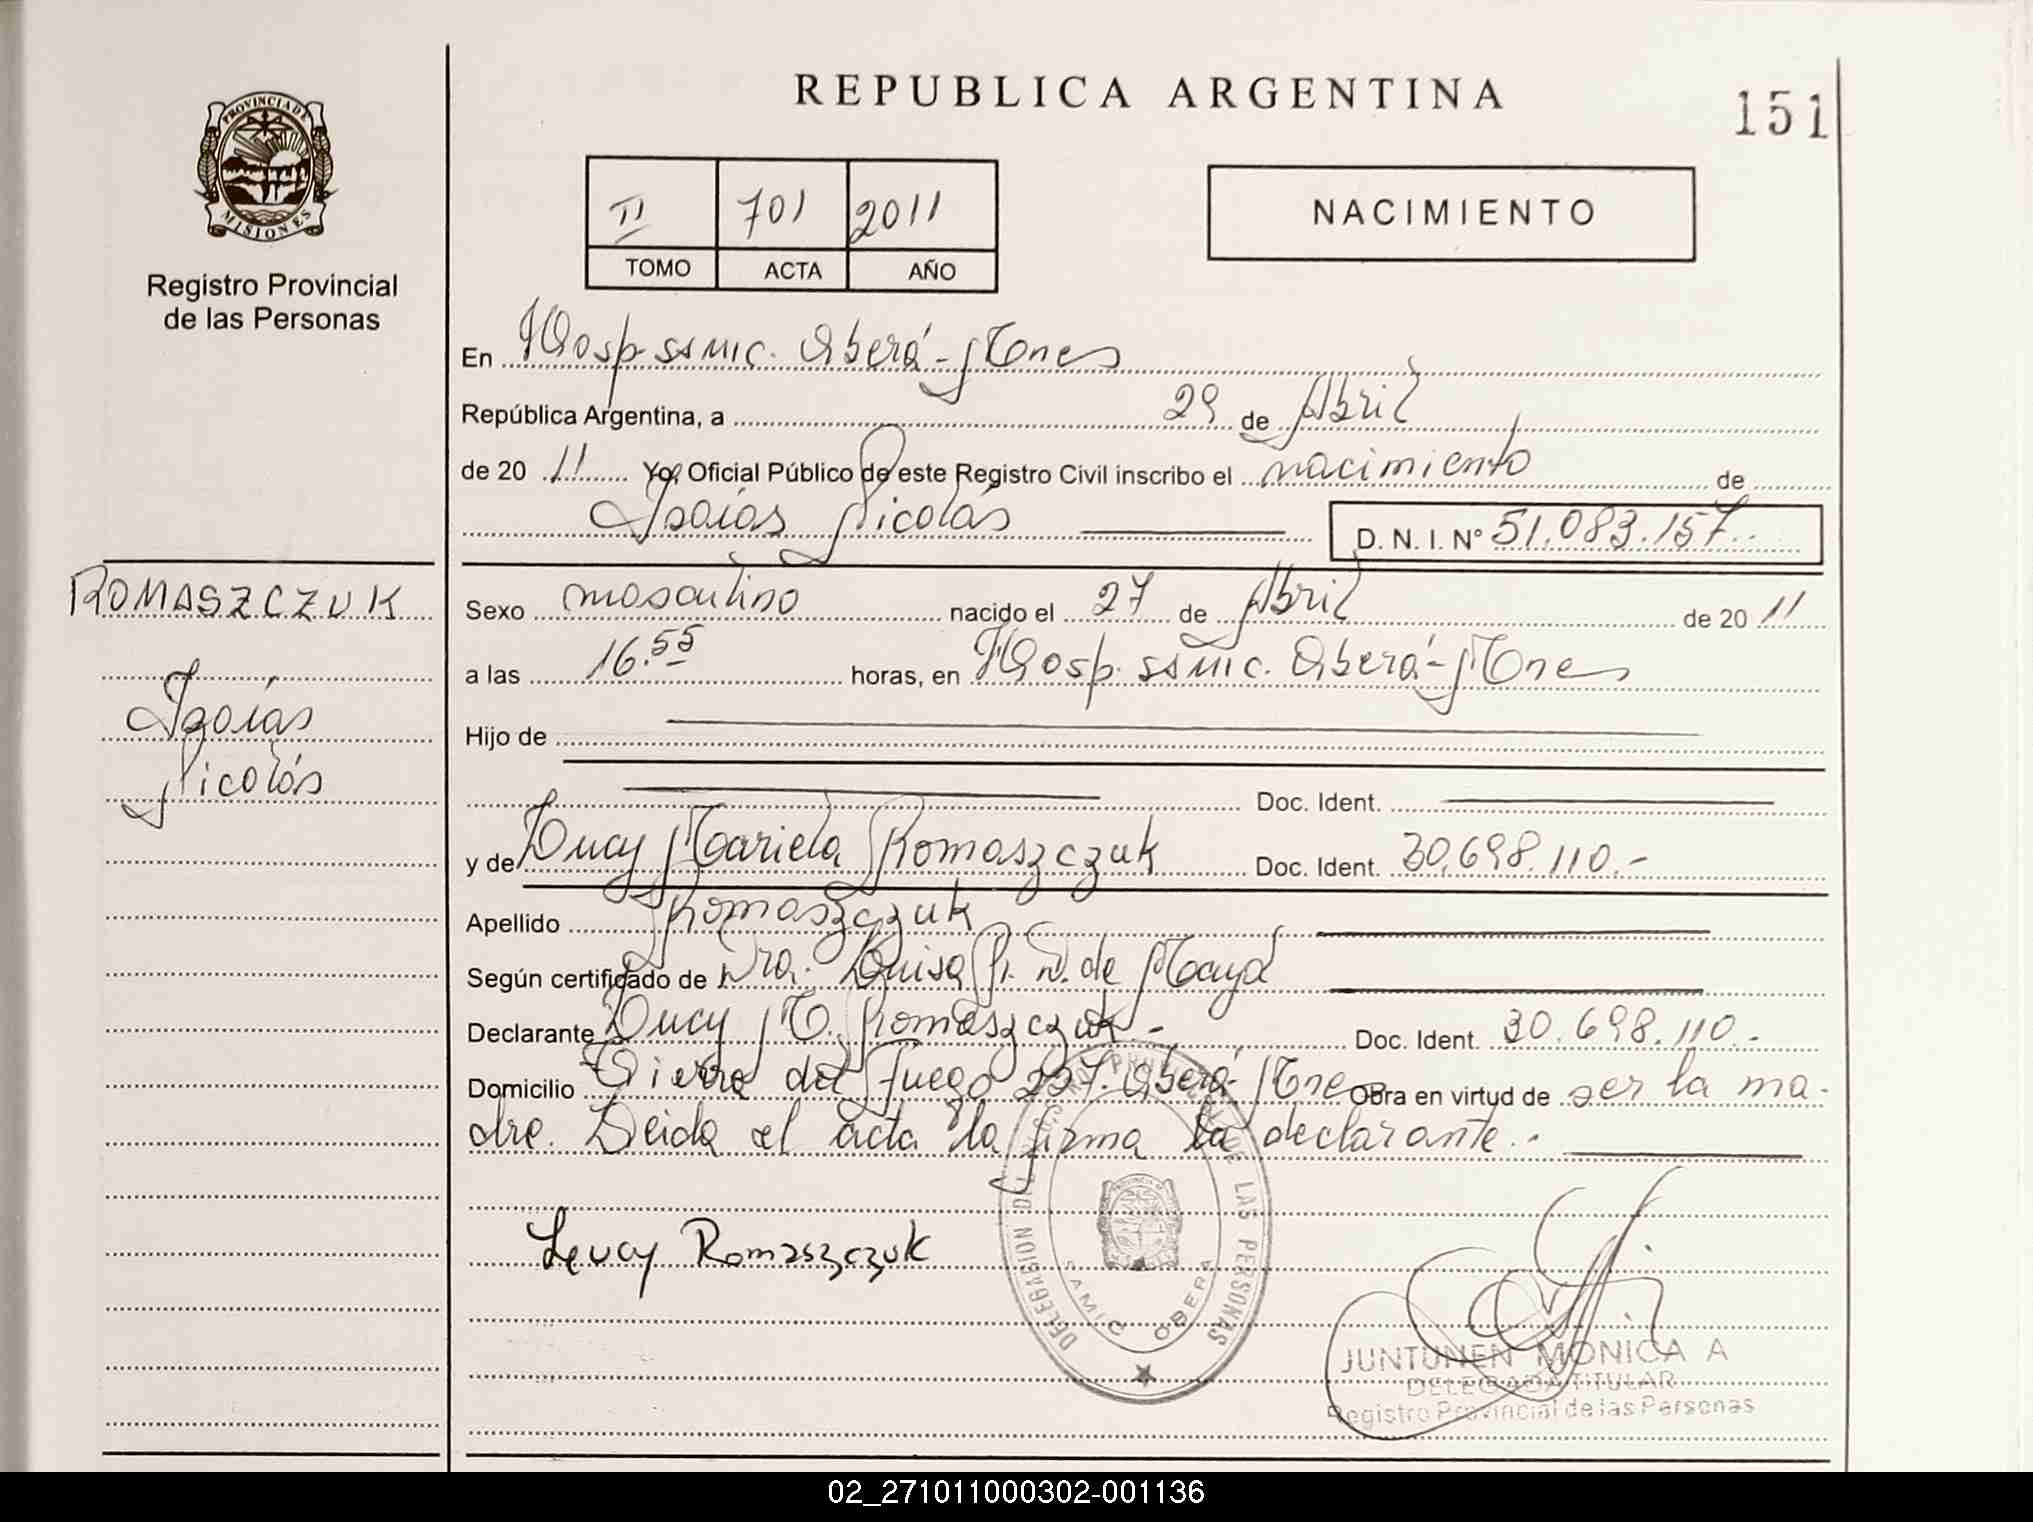 REPUBLICA ARGENTINA
151
PROVINCIA DE
MISIONES
Registro Provincial
de las Personas
II 701 2011
TOMO ACTA AÑO
NACIMIENTO
En Hosp. ssmic. Oberá-Mnes
República Argentina, a 29 de Abril
de 20 11 Yo, Oficial Público de este Registro Civil inscribo el nacimiento de
Isaías Nicolás D. N. I. Nº 51.083.157.-
ROMASZCZUK
Isaías
Nicolás
Sexo masculino nacido el 27 de Abril de 20 11
a las 16.55 horas, en Hosp. ssmic. Oberá-Mnes
Hijo de
Doc. Ident.
y de Lucy Mariela Romaszczuk Doc. Ident. 30.698.110.-
Apellido Romaszczuk
Según certificado de Dra. Luisa de Maya
Declarante Lucy M. Romaszczuk.- Doc. Ident. 30.698.110.-
Domicilio Tierra del Fuego 237. Oberá-Mnes Obra en virtud de ser la ma-
dre. Leida el acta la firma la declarante.-
Leucy Romaszczuk
DELEGACION DE LAS PERSONAS
SAMIC OBERA
JUNTUNEN MONICA A
DELEGADA TITULAR
Registro Provincial de las Personas
02_271011000302-001136